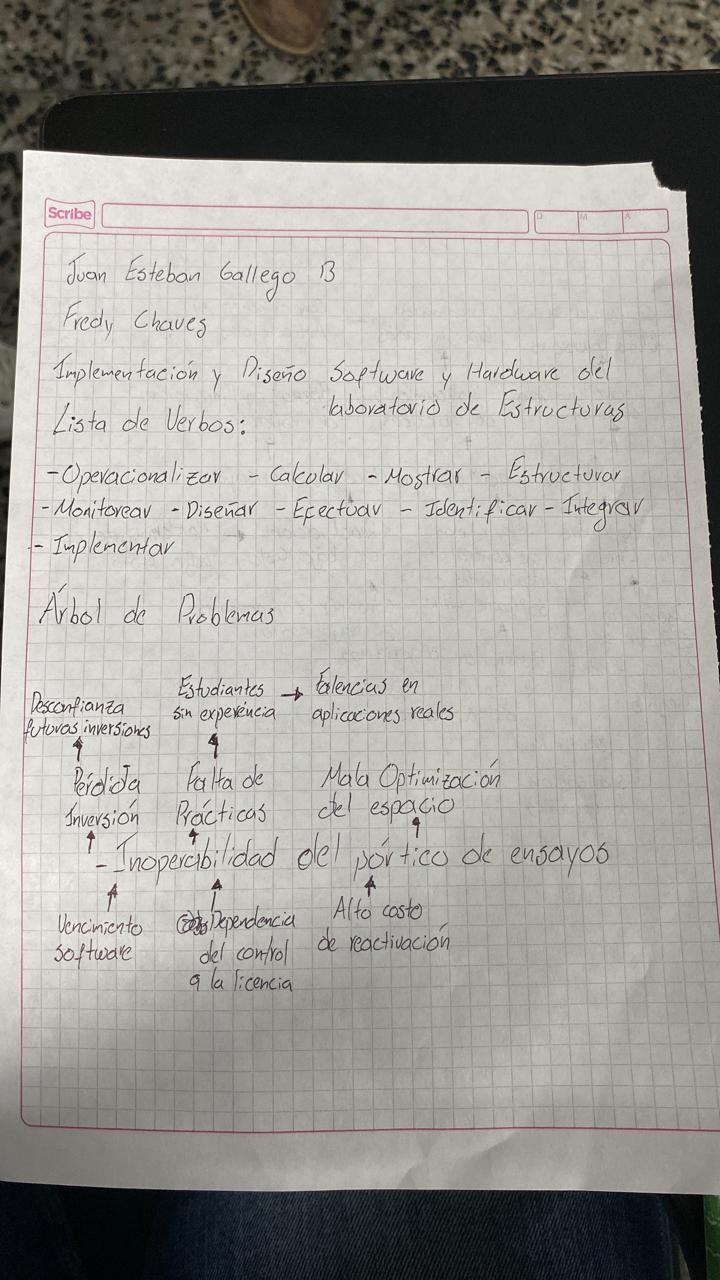 Scribe
D M A
Juan Esteban Gallego B
Fredy Chaves
Implementación y Diseño Software y Hardware del
laboratorio de Estructuras
Lista de Verbos:
- Operacionalizar - Calcular - Mostrar - Estructurar
- Monitorear - Diseñar - Efectuar - Identificar - Integrar
- Implementar
Árbol de Problemas
Desconfianza
futuras inversiones
Estudiantes
sin experencia
→ Falencias en
aplicaciones reales
Pérdida
Inversión
Falta de
Prácticas
Mala Optimización
del espacio
- Inoperabilidad del pórtico de ensayos
Vencimiento
software
Dependencia
del control
a la licencia
Alto costo
de reactivación